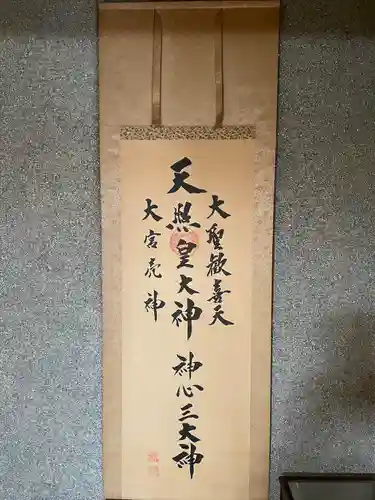 大聖歓喜天
天照皇大神
神心三大神
大宮虎神